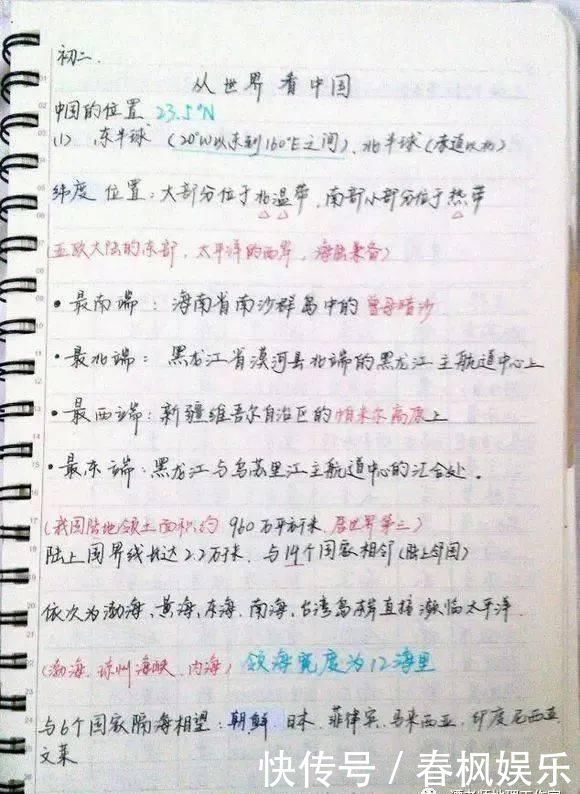 初二.
从世界看中国
中国的位置 23.5°N
(1) 东半球 (20°W以东到160°E之间)、北半球(赤道以北)
纬度 位置:大部分位于北温带,南部小部分位于热带
(亚欧大陆的东部,太平洋的西岸,海陆兼备)
• 最南端:海南省南沙群岛中的曾母暗沙
• 最北端:黑龙江省漠河县北端的黑龙江主航道中心上
• 最西端:新疆维吾尔自治区的帕米尔高原上
• 最东端:黑龙江与乌苏里江主航道中心的汇合处.
(我国陆地领土面积约960万平方千米,居世界第三)
陆上国界线长达2.2万千米,与14个国家相邻(陆上邻国)
依次为渤海、黄海、东海、南海,台湾岛东岸直接濒临太平洋.
(渤海、琼州海峡、内海) 领海宽度为12海里
与6个国家隔海相望:朝鲜 日本、菲律宾、马来西亚,印度尼西亚
文莱
快传号/春风娱乐